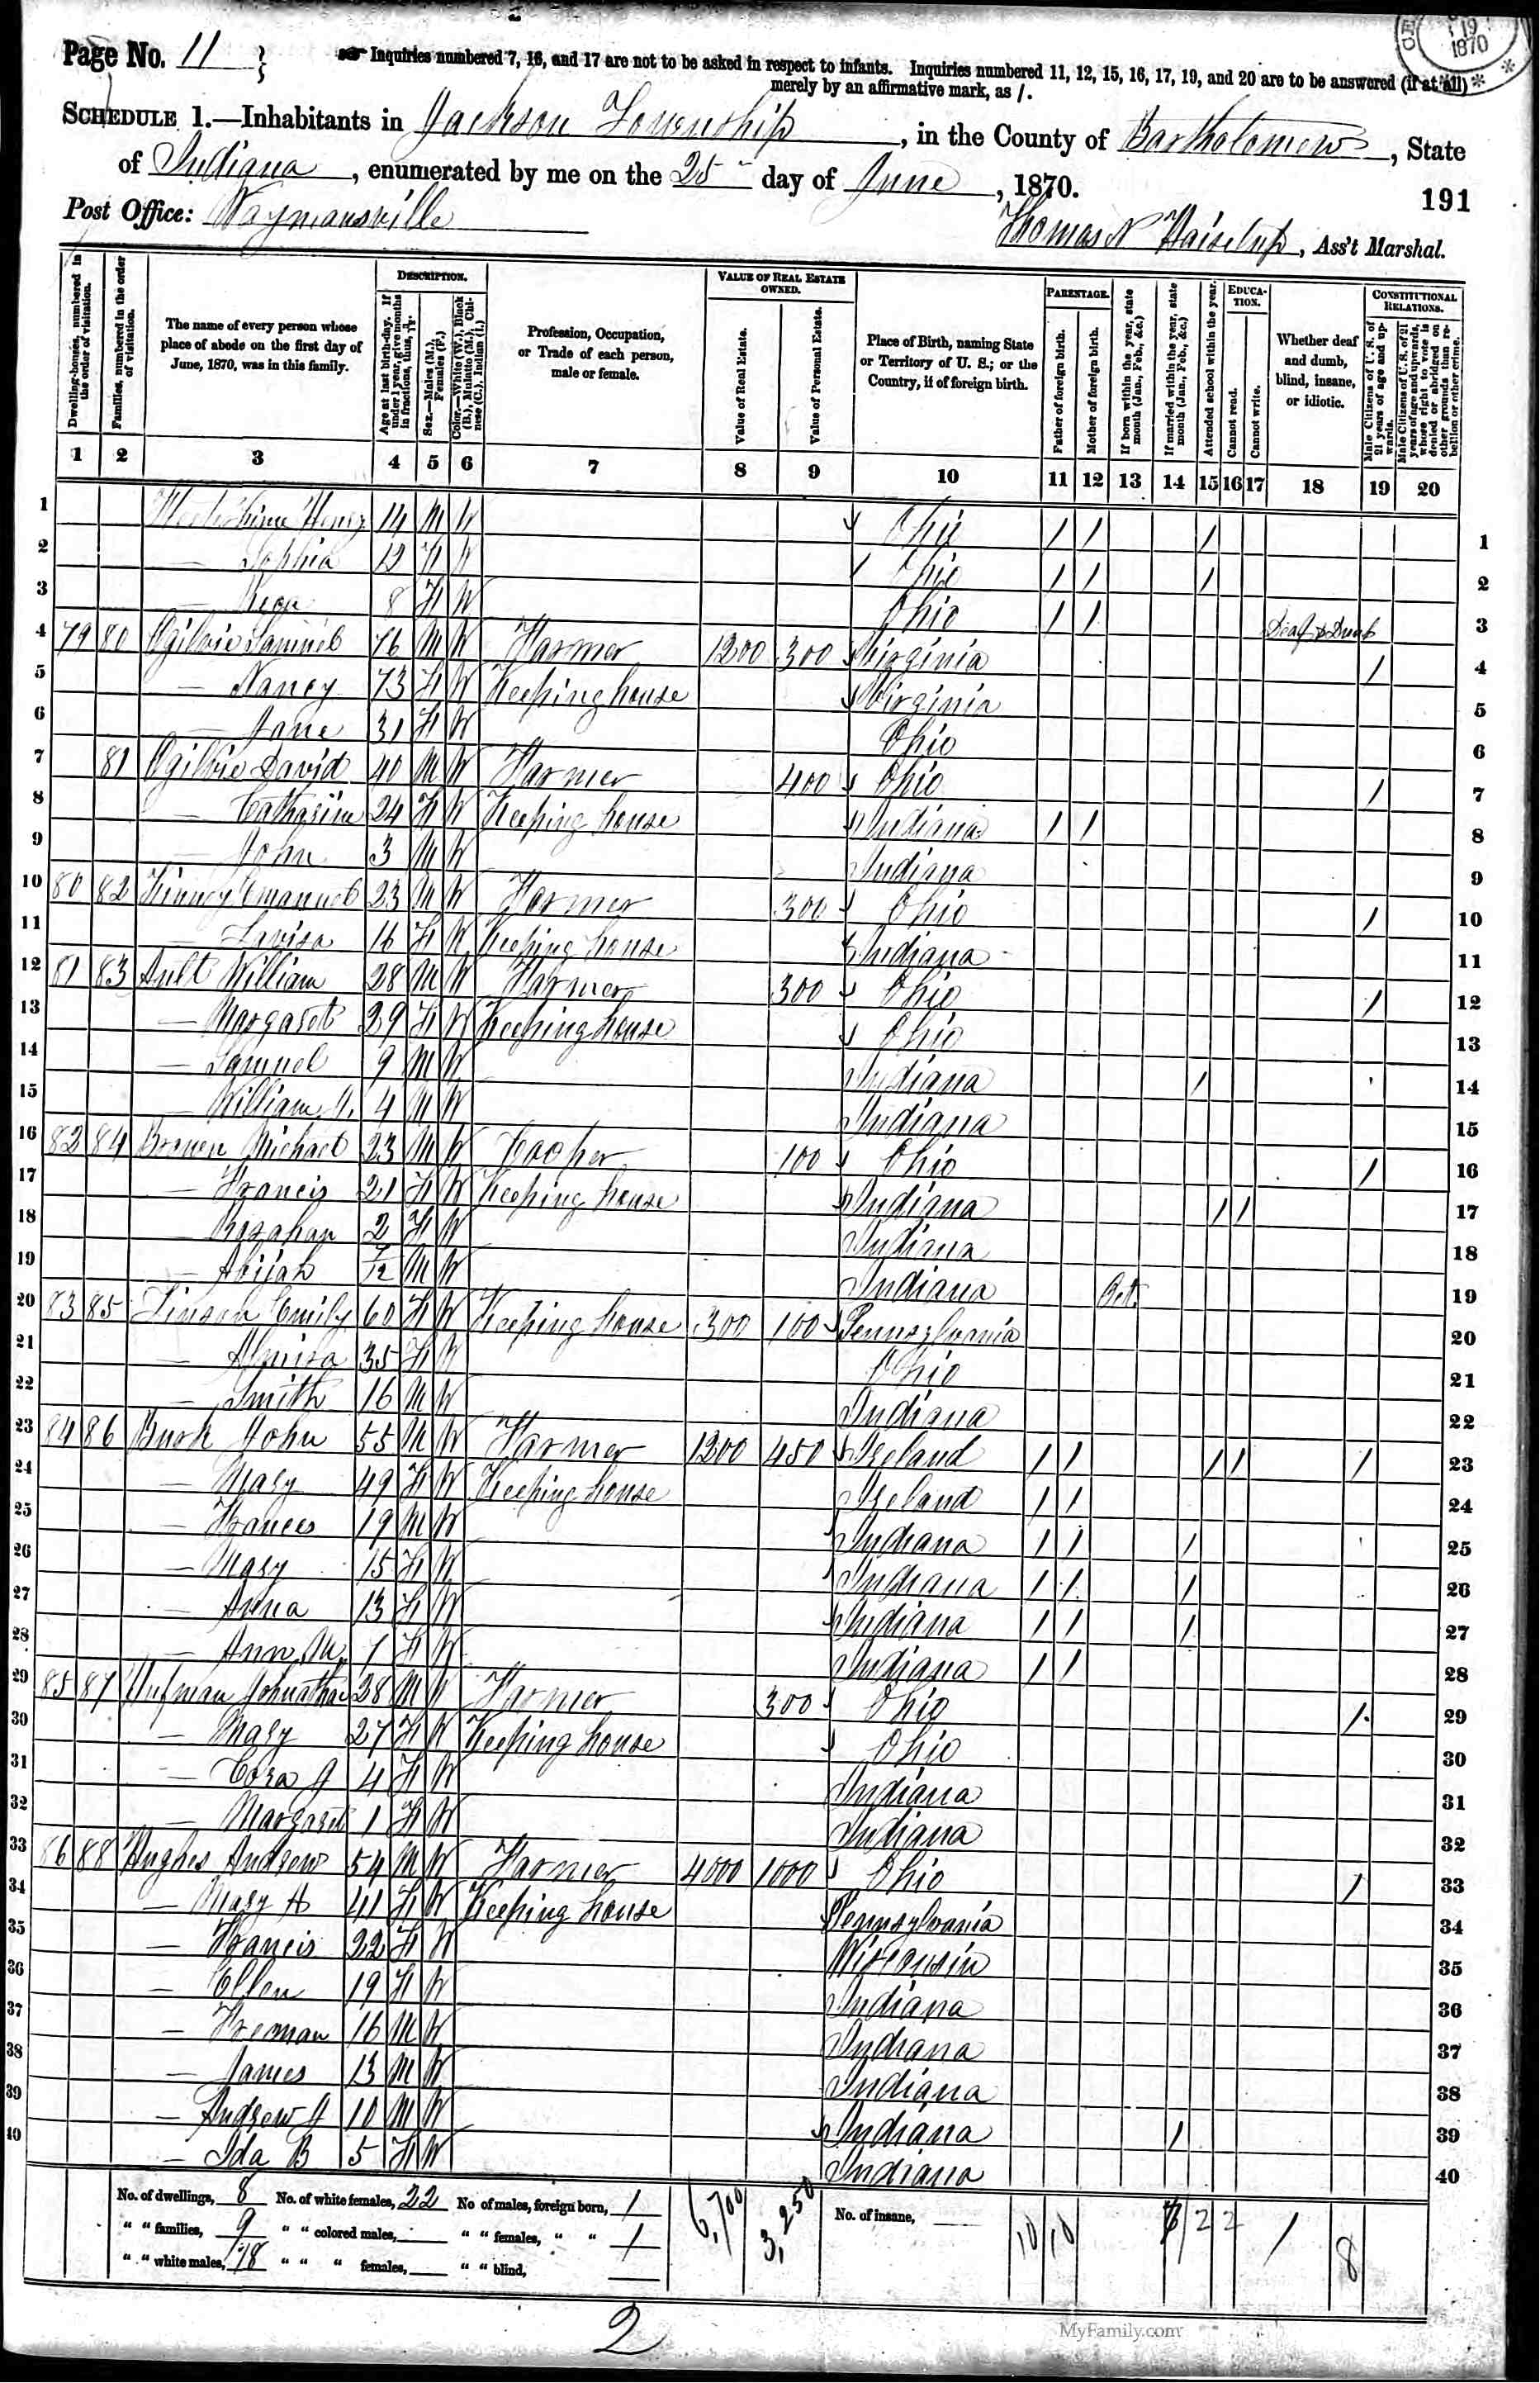 Page No. 11
Inquiries numbered 7, 16, and 17 are not to be asked in respect to infants. Inquiries numbered 11, 12, 15, 16, 17, 19, and 20 are to be answered (if at all)
merely by an affirmative mark, as /.
19
1870
SCHEDULE 1.—Inhabitants in Jackson Township, in the County of Bartholomew, State
of Indiana, enumerated by me on the 25 day of June, 1870.
191
Post Office: Waymansville
Thomas N Haislup, Ass't Marshal.
Dwelling-houses, numbered in the order of visitation.
Families, numbered in the order of visitation.
The name of every person whose place of abode on the first day of June, 1870, was in this family.
DESCRIPTION.
Age at last birth-day. If under 1 year, give months in fractions, thus, 3/12.
Sex.—Males (M.), Females (F.)
Color.—White (W.), Black (B.), Mulatto (M.), Chinese (C.), Indian (I.)
Profession, Occupation, or Trade of each person, male or female.
VALUE OF REAL ESTATE OWNED.
Value of Real Estate.
Value of Personal Estate.
Place of Birth, naming State or Territory of U. S.; or the Country, if of foreign birth.
PARENTAGE.
Father of foreign birth.
Mother of foreign birth.
If born within the year, state month (Jan., Feb., &c.)
If married within the year, state month (Jan., Feb., &c.)
Attended school within the year.
EDUCATION.
Cannot read.
Cannot write.
Whether deaf and dumb, blind, insane, or idiotic.
CONSTITUTIONAL RELATIONS.
Male Citizens of U. S. of 21 years of age and upwards.
Male Citizens of U. S. of 21 years of age and upwards, whose right to vote is denied or abridged on other grounds than rebellion or other crime.
1 2 3 4 5 6 7 8 9 10 11 12 13 14 15 16 17 18 19 20
1 Henry 14 M W Ohio / / / 1
2 — Sophia 12 F W Ohio / / / 2
3 — 8 F W Ohio / / Deaf & Dumb 3
4 79 80 Ogilvie Samuel 76 M W Farmer 1200 300 Virginia / 4
5 — Nancy 73 F W Keeping house Virginia 5
6 — Jane 31 F W Ohio 6
7 81 Ogilvie David 40 M W Farmer 400 Ohio / 7
8 — Catharine 24 F W Keeping house Indiana / / 8
9 — John 3 M W Indiana 9
10 80 82 Finney Emanuel 23 M W Farmer 300 Ohio / 10
11 — Lavisa 16 F W Keeping house Indiana 11
12 81 83 Ault William 28 M W Farmer 300 Ohio / 12
13 — Margaret 29 F W Keeping house Ohio 13
14 — Samuel 9 M W Indiana / 14
15 — William 4 M W Indiana 15
16 82 84 Brown Michael 23 M W Cooper 100 Ohio / 16
17 — Francis 21 F W Keeping house Indiana / / 17
18 — Rozahan 2 F W Indiana 18
19 — Abijah /12 M W Indiana Oct. 19
20 83 85 Emily 60 F W Keeping house 300 100 Pennsylvania 20
21 — Almira 35 F W Ohio 21
22 — Smith 16 M W Indiana 22
23 84 86 Burk John 55 M W Farmer 1200 450 Ireland / / / / / 23
24 — Mary 49 F W Keeping house Ireland / / 24
25 — Frances 19 M W Indiana / / / 25
26 — Mary 15 F W Indiana / / / 26
27 — Anna 13 F W Indiana / / / 27
28 — Ann M. 7 F W Indiana / / 28
29 85 87 Hufman Johnathan 28 M W Farmer 300 Ohio / 29
30 — Mary 27 F W Keeping house Ohio 30
31 — Cora J 4 F W Indiana 31
32 — Margaret 1 F W Indiana 32
33 86 88 Hughes Andrew 54 M W Farmer 4000 1000 Ohio / 33
34 — Mary A 41 F W Keeping house Pennsylvania 34
35 — Francis 22 F W Wisconsin 35
36 — Ellen 19 F W Indiana 36
37 — Freeman 16 M W Indiana 37
38 — James 13 M W Indiana 38
39 — Andrew J 10 M W Indiana / 39
40 — Ida B 5 F W Indiana 40
No. of dwellings, 8 No. of white females, 22 No of males, foreign born, 1 6,700 3,250 No. of insane, 10 10 2 2 1 8
" " families, 9 " " colored males, " " females, " " 1
" " white males, 18 " " " females, " " blind,
2
MyFamily.com